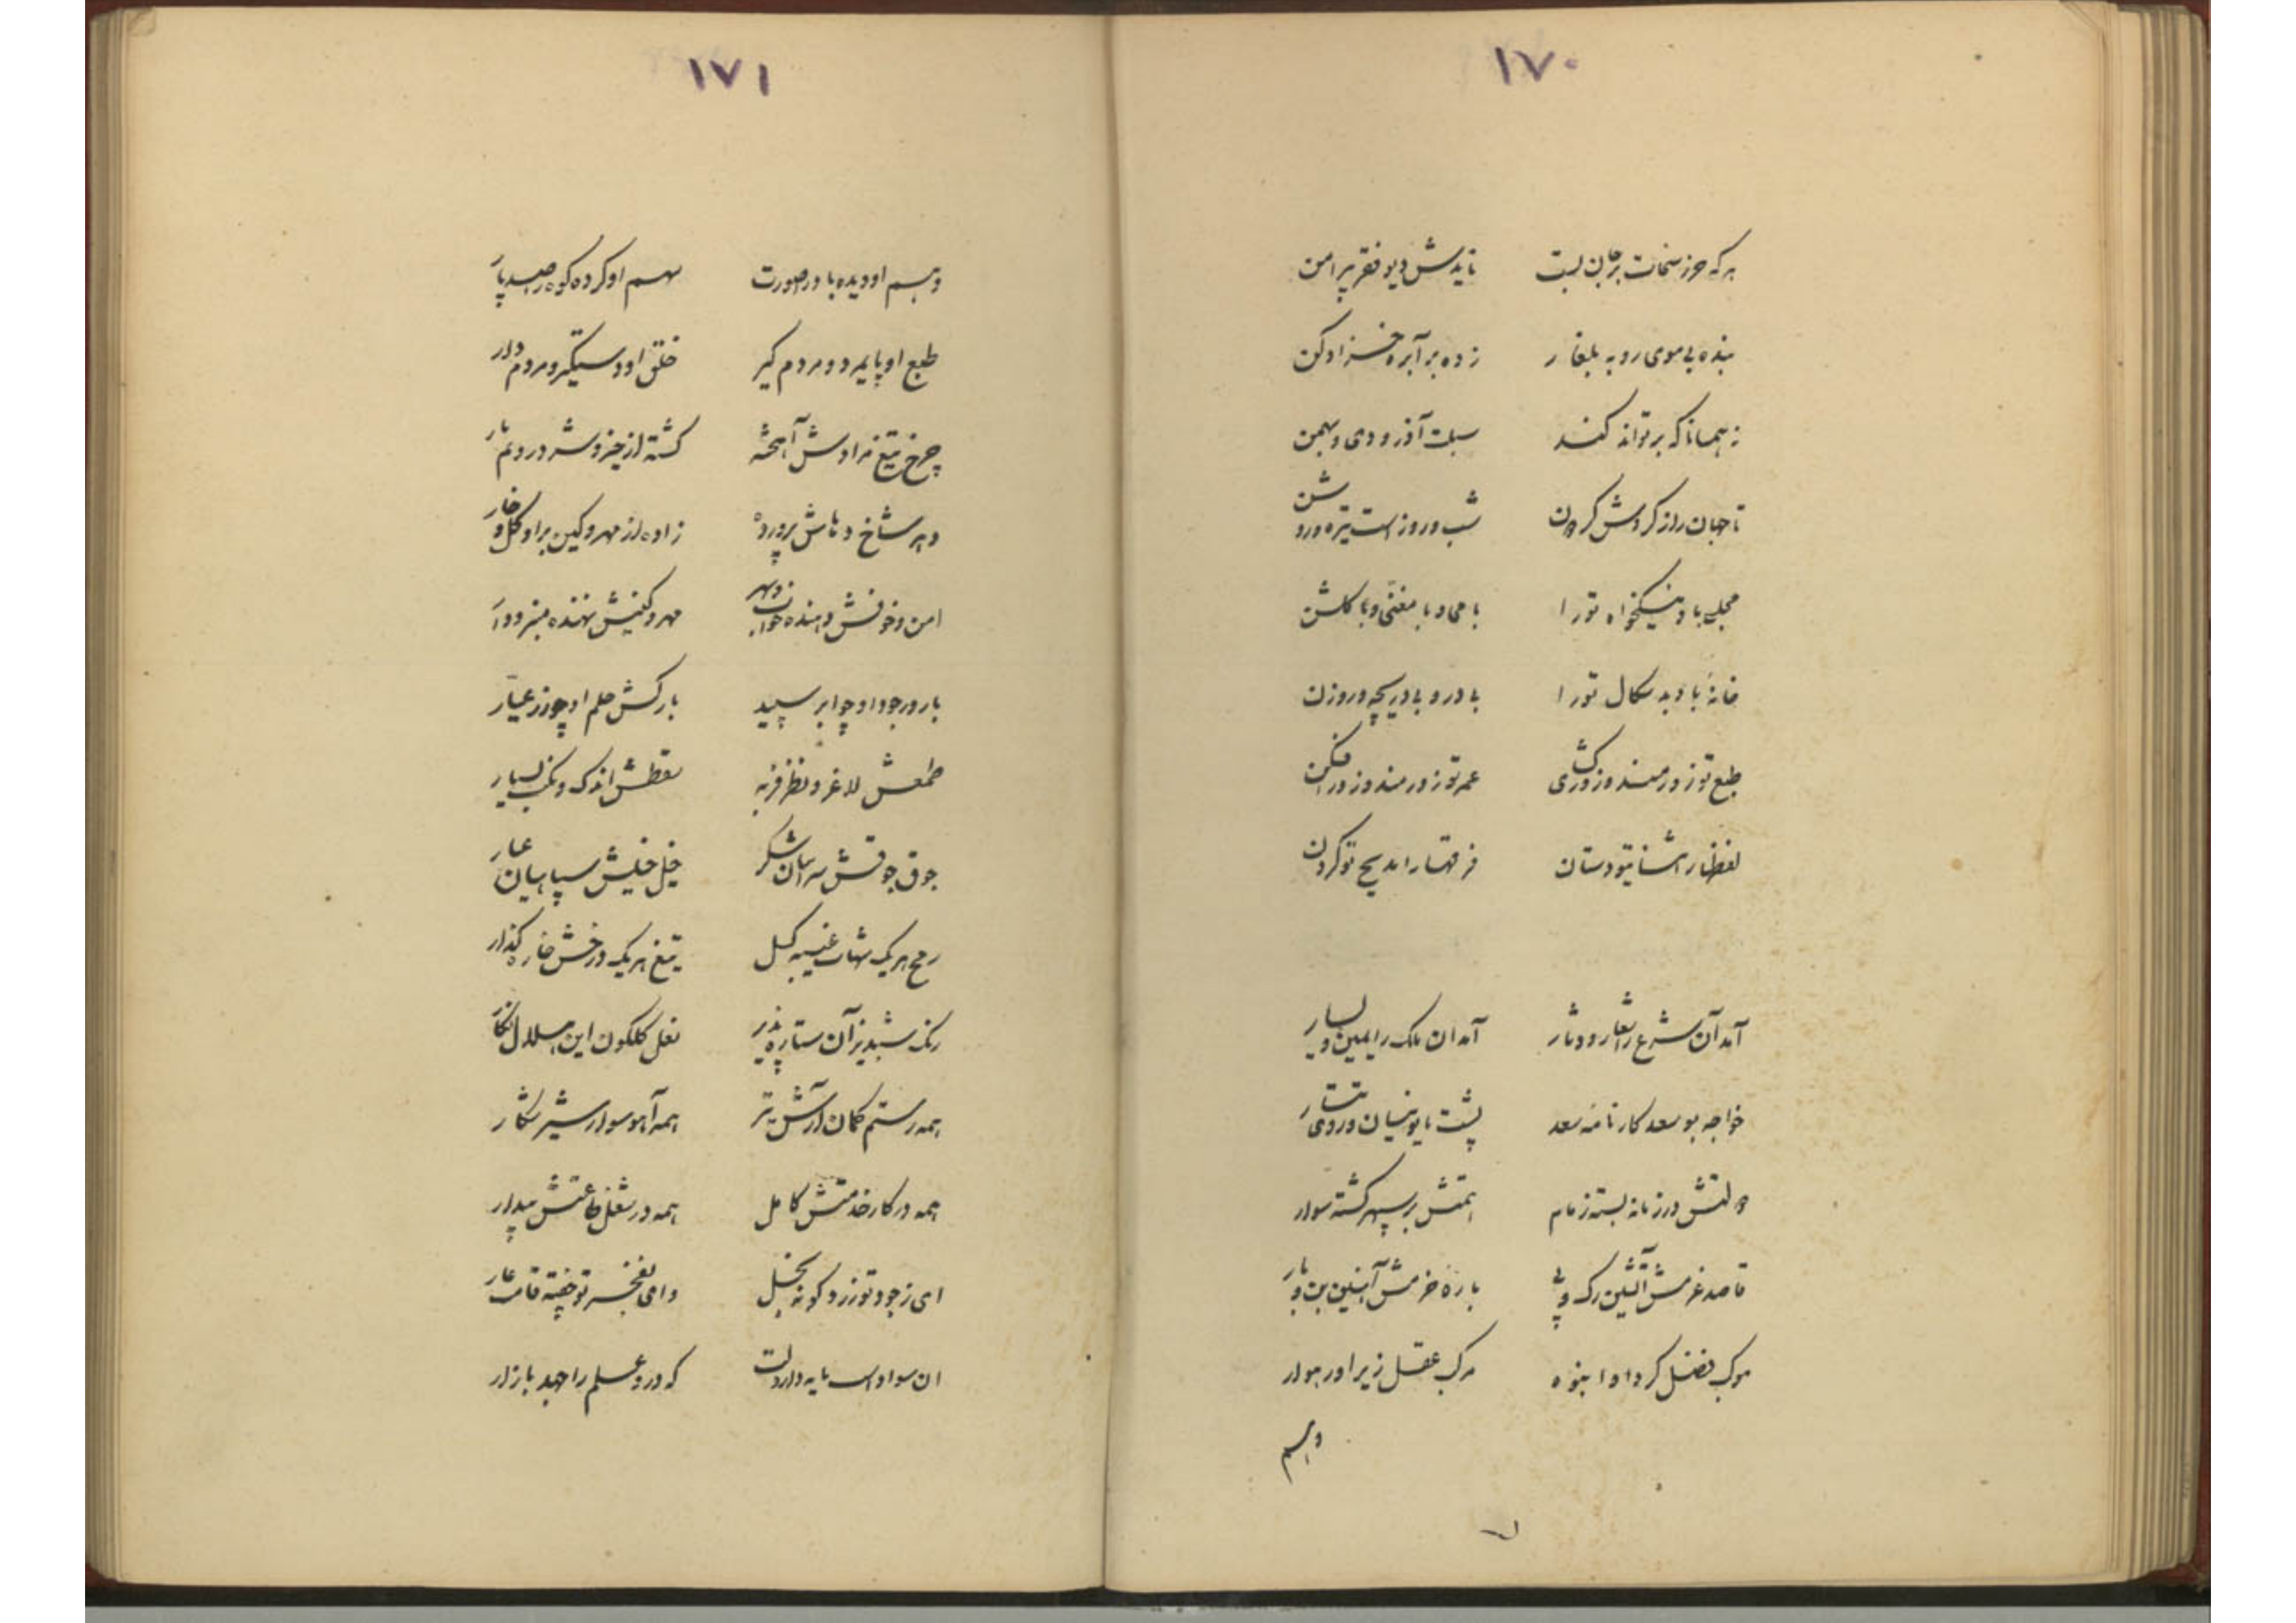 ۱۷۰
هرکه حرز سخات بر جان بست نایدش دیو فقر پیرامن
بنده بی موی روبه بلغار زده بر آبره خز ادکن
زیهمانا که برتواند کند سبلت آذر و دی و بهمن
تا جهان را ز گردش گردون شب و روز است تیره و روشن
مجلس باد نیکخواه تورا با می و با مغنی و با گلشن
خانهٔ باد بدسکال تورا بی در و بی دریچه و روزن
طبع تو زورمند و زورکشی عمر تو زورمند و زورافکن
لفظها را ثنای تو دستان فرقها را مدیح تو گردن
آمد آن شرع را شعار و دثار آمد ان ملک را یمین و یسار
خواجه بوسعد کارنامهٔ سعد پشت ایونیان و روی تتار
دولتش در زمانه بسته زمام همتش بر سپهر گشته سوار
قاصد عزمش آتشین رک و پی بارهٔ حزمش آهنین بن و بار
موکب فضل کرد او انبوه مرکب عقل زیر او رهوار
وهم
۱۷۱
وهم او دیده باد را صورت سهم او کرده کوه را صد پار
طبع او پایمرد و مردم گیر خلق او دستگیر و مردم دار
چرخ تیغ مرادش آهخته گشته از چیز و شر درو نم بار
دهر شاخ دهاش پرورده زاده از مهر و کین بر او گل و خار
امن و خوفش دهنده خواب و سهر مهر و کینش نهنده منبر و دار
بارور جود او چو ابر سپید بارکش حلم او چو زر عیار
طمعش لاغر و نظر فربه سقطش اندک و نکت بسیار
جوق جوقش سرایان شکر خیل خیلش سپاهیان عمار
رمح هریک شهاب غیبه گسل تیغ هریک درخش خاره گذار
رنگ شبدیز آن ستاره پذیر نعل گلگون این هلال نگار
همه رستم کمان آرش تیر همه آهو سوار شیر شکار
همه در کار خدمتش کامل همه در شغل طاعتش بیدار
ای ز جود تو زرد گونه بخل وای بفخر تو خفته قامت عار
ان سواد است مایه دارد لت که درو علم را جهد بازار